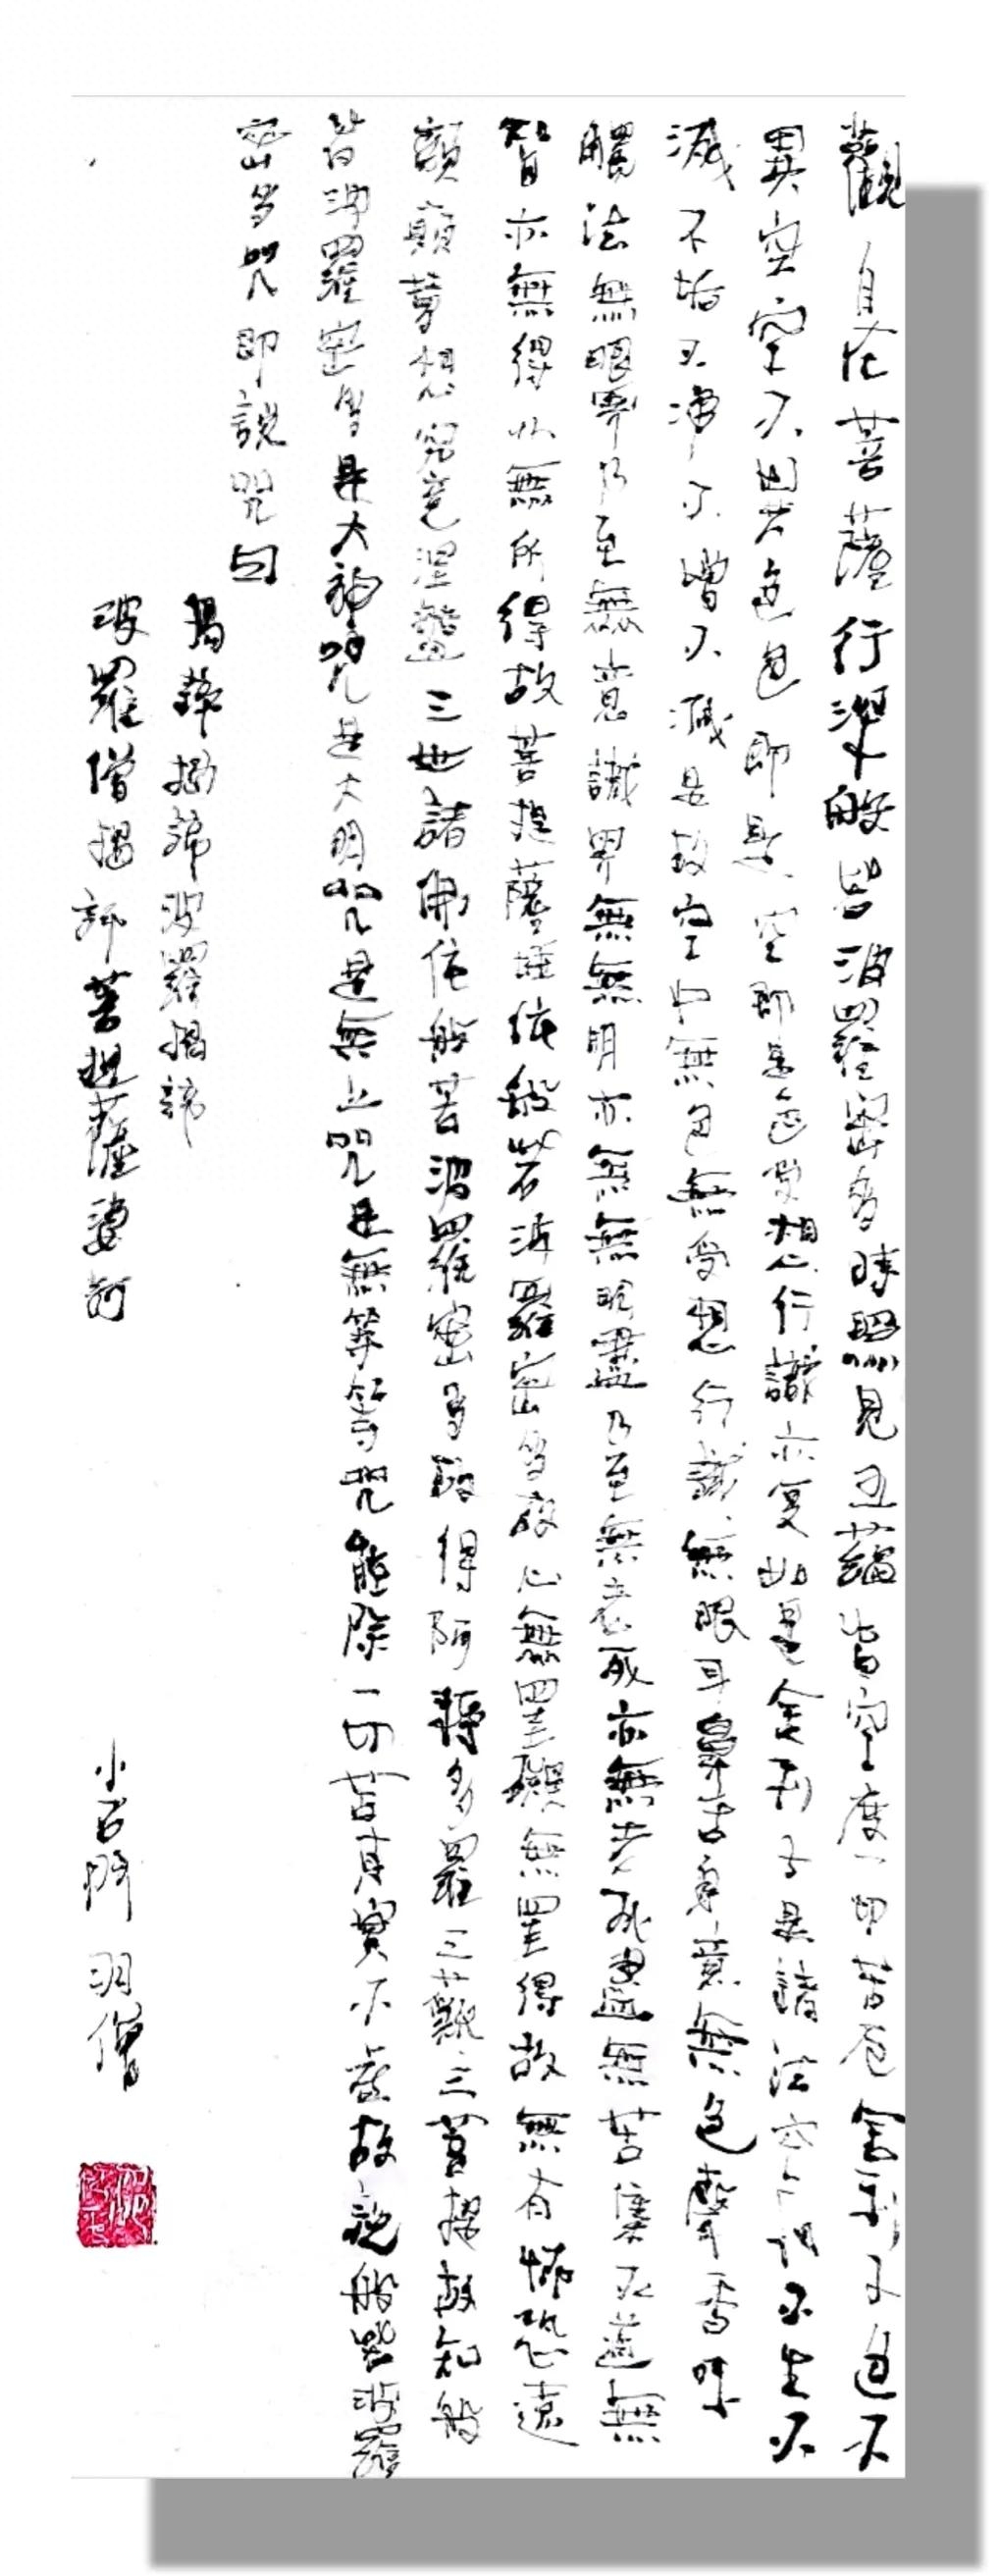 觀自在菩薩行深般若波羅密多時照見五蘊皆空度一切苦厄舍利子色不
異空空不異色色即是空即是色受想行識亦复如是舍利子是諸法空相不生不
滅不垢不淨不增不減是故空中無色無受想行識無眼耳鼻舌身意無色聲香味
觸法無眼界乃至無意識界無無明亦無無明盡乃至無老死亦無老死盡無苦集滅道無
智亦無得以無所得故菩提薩埵依般若波羅密多故心無罣礙無罣得故無有怖恐遠
顛夢想究竟涅盤三世諸佛依般若波羅密多故得阿耨多羅三藐三菩提故知般
若波羅密多是大神咒是大明咒是無上咒是無等等咒能除一切苦真實不虛故說般若波羅
密多咒即說咒曰
揭諦揭諦波羅揭諦
波羅僧揭諦菩提薩婆訶
小石門 羽僧